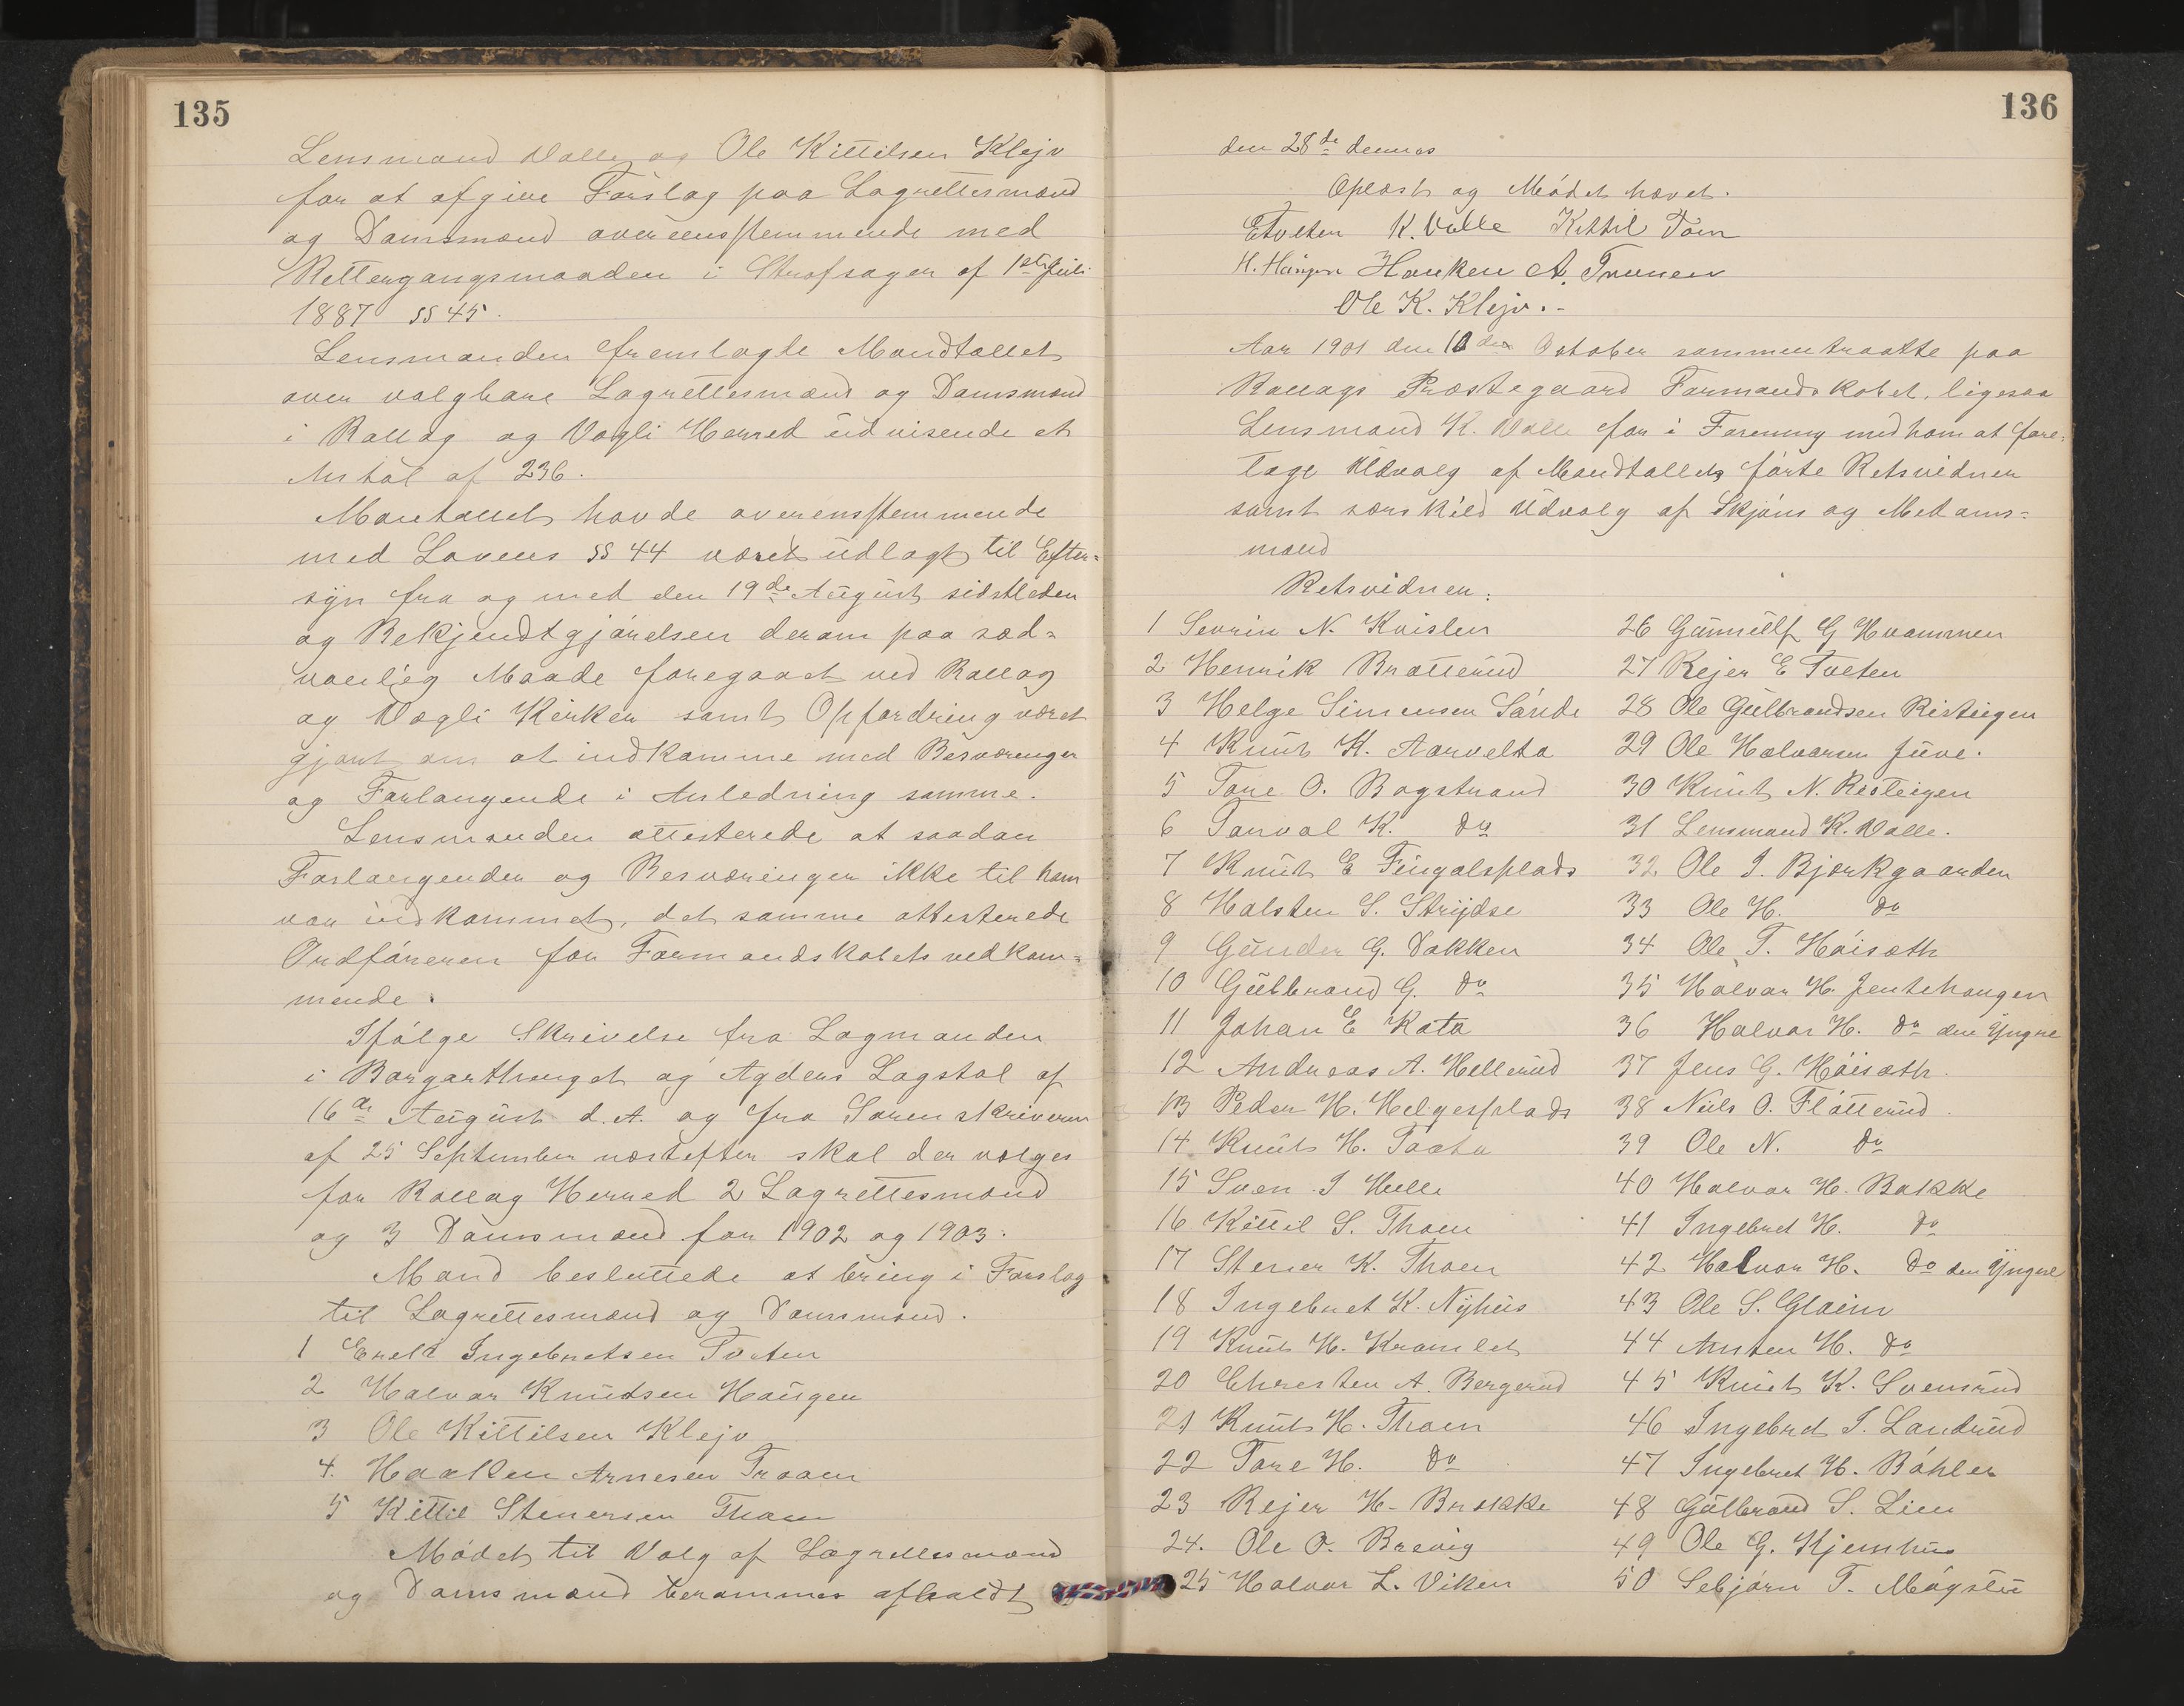 135
Lensmand Valle og Ole Kittilsen Klejv
for at afgive Forslag paa Lagrettesmænd
og Domsmænd overeensstemmende med
Rettergangsmaaden i Strafsager af 1ste Juli
1887 §§ 45.
Lensmanden fremlagte Mandtallet
over valgbare Lagrettesmænd og Domsmænd
i Rollag og Vægli Herred udvisende et
Antal af 236.
Mantallet havde overensstemmende
med Lovens §§ 44 været udlagt til Efter=
syn fra og med den 19de August sidstleden
og Bekjendtgjørelsen derom paa sæd=
vanlig Maade foregaaet ved Rollag
og Vægli Kirker samt Opfordring været
gjort om at indkomme med Besværinger
og Forlangende i Anledning samme.
Lensmanden attesterede at saadan
Forlangender og Besværinger ikke til ham
var indkommet, det samme attesterede
Ordføreren for Formandskabets vedkom=
mende.
Ifølge Skrivelse fra Lagmanden
i Borgarthinget og Agders Lagstol af
16de August d. A. og fra Sorenskriveren
af 25 September næstefter skal der vælges
for Rollag Herred 2 Lagrettesmænd
og 3 Domsmænd for 1902 og 1903.
Mand besluttede at bring i Forslag
til Lagrettesmænd og Domsmænd.
1 Enelt Ingebretsen Tveten
2 Halvor Knudsen Haugen
3 Ole Kittilsen Klejv
4. Haaken Arnesen Traaen
5 Kittil Stenersen Thoen
Mødet til Valg af Lagrettesmænd
og Domsmænd berammes afholdt
136
den 28de dennes
Oplæst og Mødet hævet.
ETveten K. Valle Kittil Toen
H. Haugen Hauken A. Traaen
Ole K. Klejv.-
Aar 1901 den 10den October sammentraatte paa
Rollags Præstegaard Formandskabet, ligesaa
Lensmand K. Valle for i Forening med ham at fore=
tage Udvalg af Mandtallets førte Retsvidner
samt særskild Udvalg af Skjøns og Medoms=
mænd
Retsvidner:
1 Sevrin N. Kvislen
2 Henrik Bratterud
3 Helge Simensen Sørde
4 Knut K. Aarvelta
5 Tore O. Bogstrand
6 Torval K. do
7 Knut E Fingalsplads
8 Halsten S. Strijdse
9 Gunder G. Dokken
10 Gulbrand G. do
11 Johan E Kata
12 Andreas A. Hellerud
13 Peder H. Helgesplads
14 Knut H. Taata
15 Sven I Helle
16 Kittil S. Thoen
17 Stener K. Thoen
18 Ingebret K. Nyhus
19 Knut H. Kravlet
20 Christen A. Bergerud
21 Knut H. Thoen
22 Tore H. do
23 Rejer H. Brekke
24. Ole O. Brevig
25 Halvor L. Viken
26 Gunnulf G Hvammen
27 Rejer E Tveten
28 Ole Gulbrandsen Risteigen
29 Ole Halvorsen Juve.
30 Knut N. Risteigen
31 Lensmand K. Valle.
32 Ole J. Bjørkgaarden
33 Ole H. do
34 Ole T. Høisæth
35 Halvor H. Jentehaugen
36 Halvor H. do den Yngre
37 Jens G. Høisæth.
38 Niels O. Fløtterud.
39 Ole N. do
40 Halvor H. Bakke
41 Ingebret H. do
42 Halvor H. do den Yngre
43 Ole S. Glaim
44 Ansten H. do
45 Knut K. Svensrud
46 Ingebret T. Landerud
47 Ingebret H. Bøhler
48 Gulbrand S. Lien
49 Ole G. Kjemhus
50 Sebjørn T. Møgstu